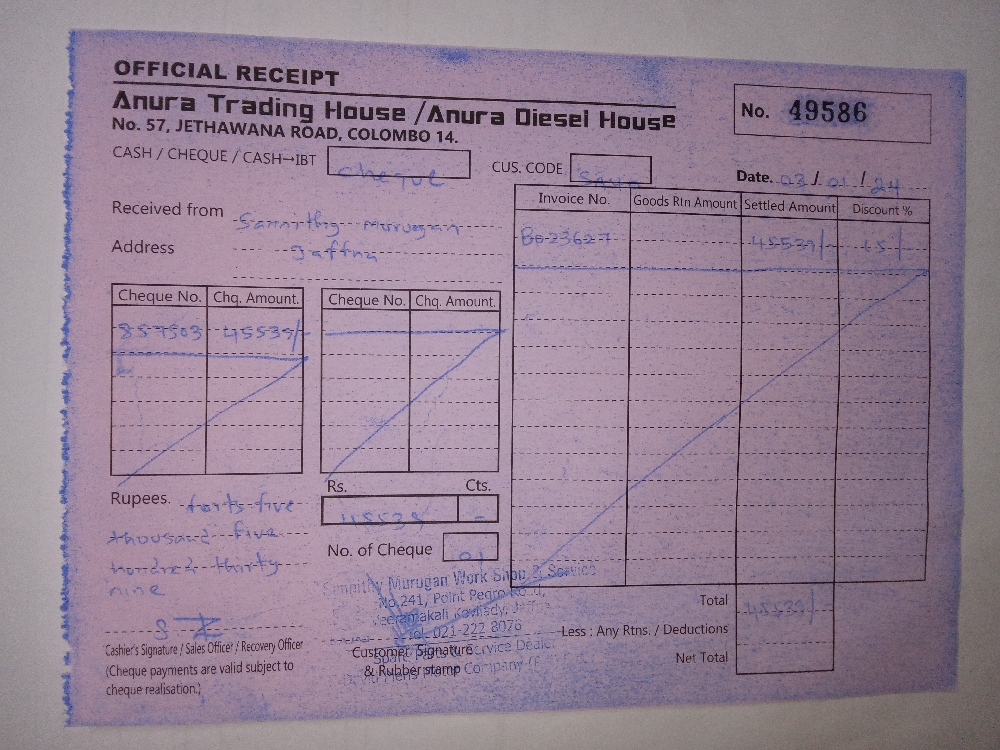 OFFICIAL RECEIPT
Anura Trading House / Anura Diesel House
No. 57, JETHAWANA ROAD, COLOMBO 14.
No. 49586
CASH / CHEQUE / CASH→IBT cheque
CUS. CODE
Date. 03 / 01 / 24
Received from Sannithy murugan
Address Jaffna
Invoice No. Goods Rtn Amount Settled Amount Discount %
B023627 45539/- 15/-
Cheque No. Chq. Amount. Cheque No. Chq. Amount.
857503 45539/-
Rupees. forty five
thousand five
hundred thirty
nine
Rs. Cts.
45539 -
No. of Cheque 01
Murugan Work Shop & Service
No.241, Point Pedro Road,
Tel. 021-222 8076
Spare Parts & Service Dealer
Company
Total 45539/-
Less : Any Rtns. / Deductions
Net Total
Cashier's Signature / Sales Officer / Recovery Officer
(Cheque payments are valid subject to
cheque realisation.)
Customer Signature
& Rubber stamp